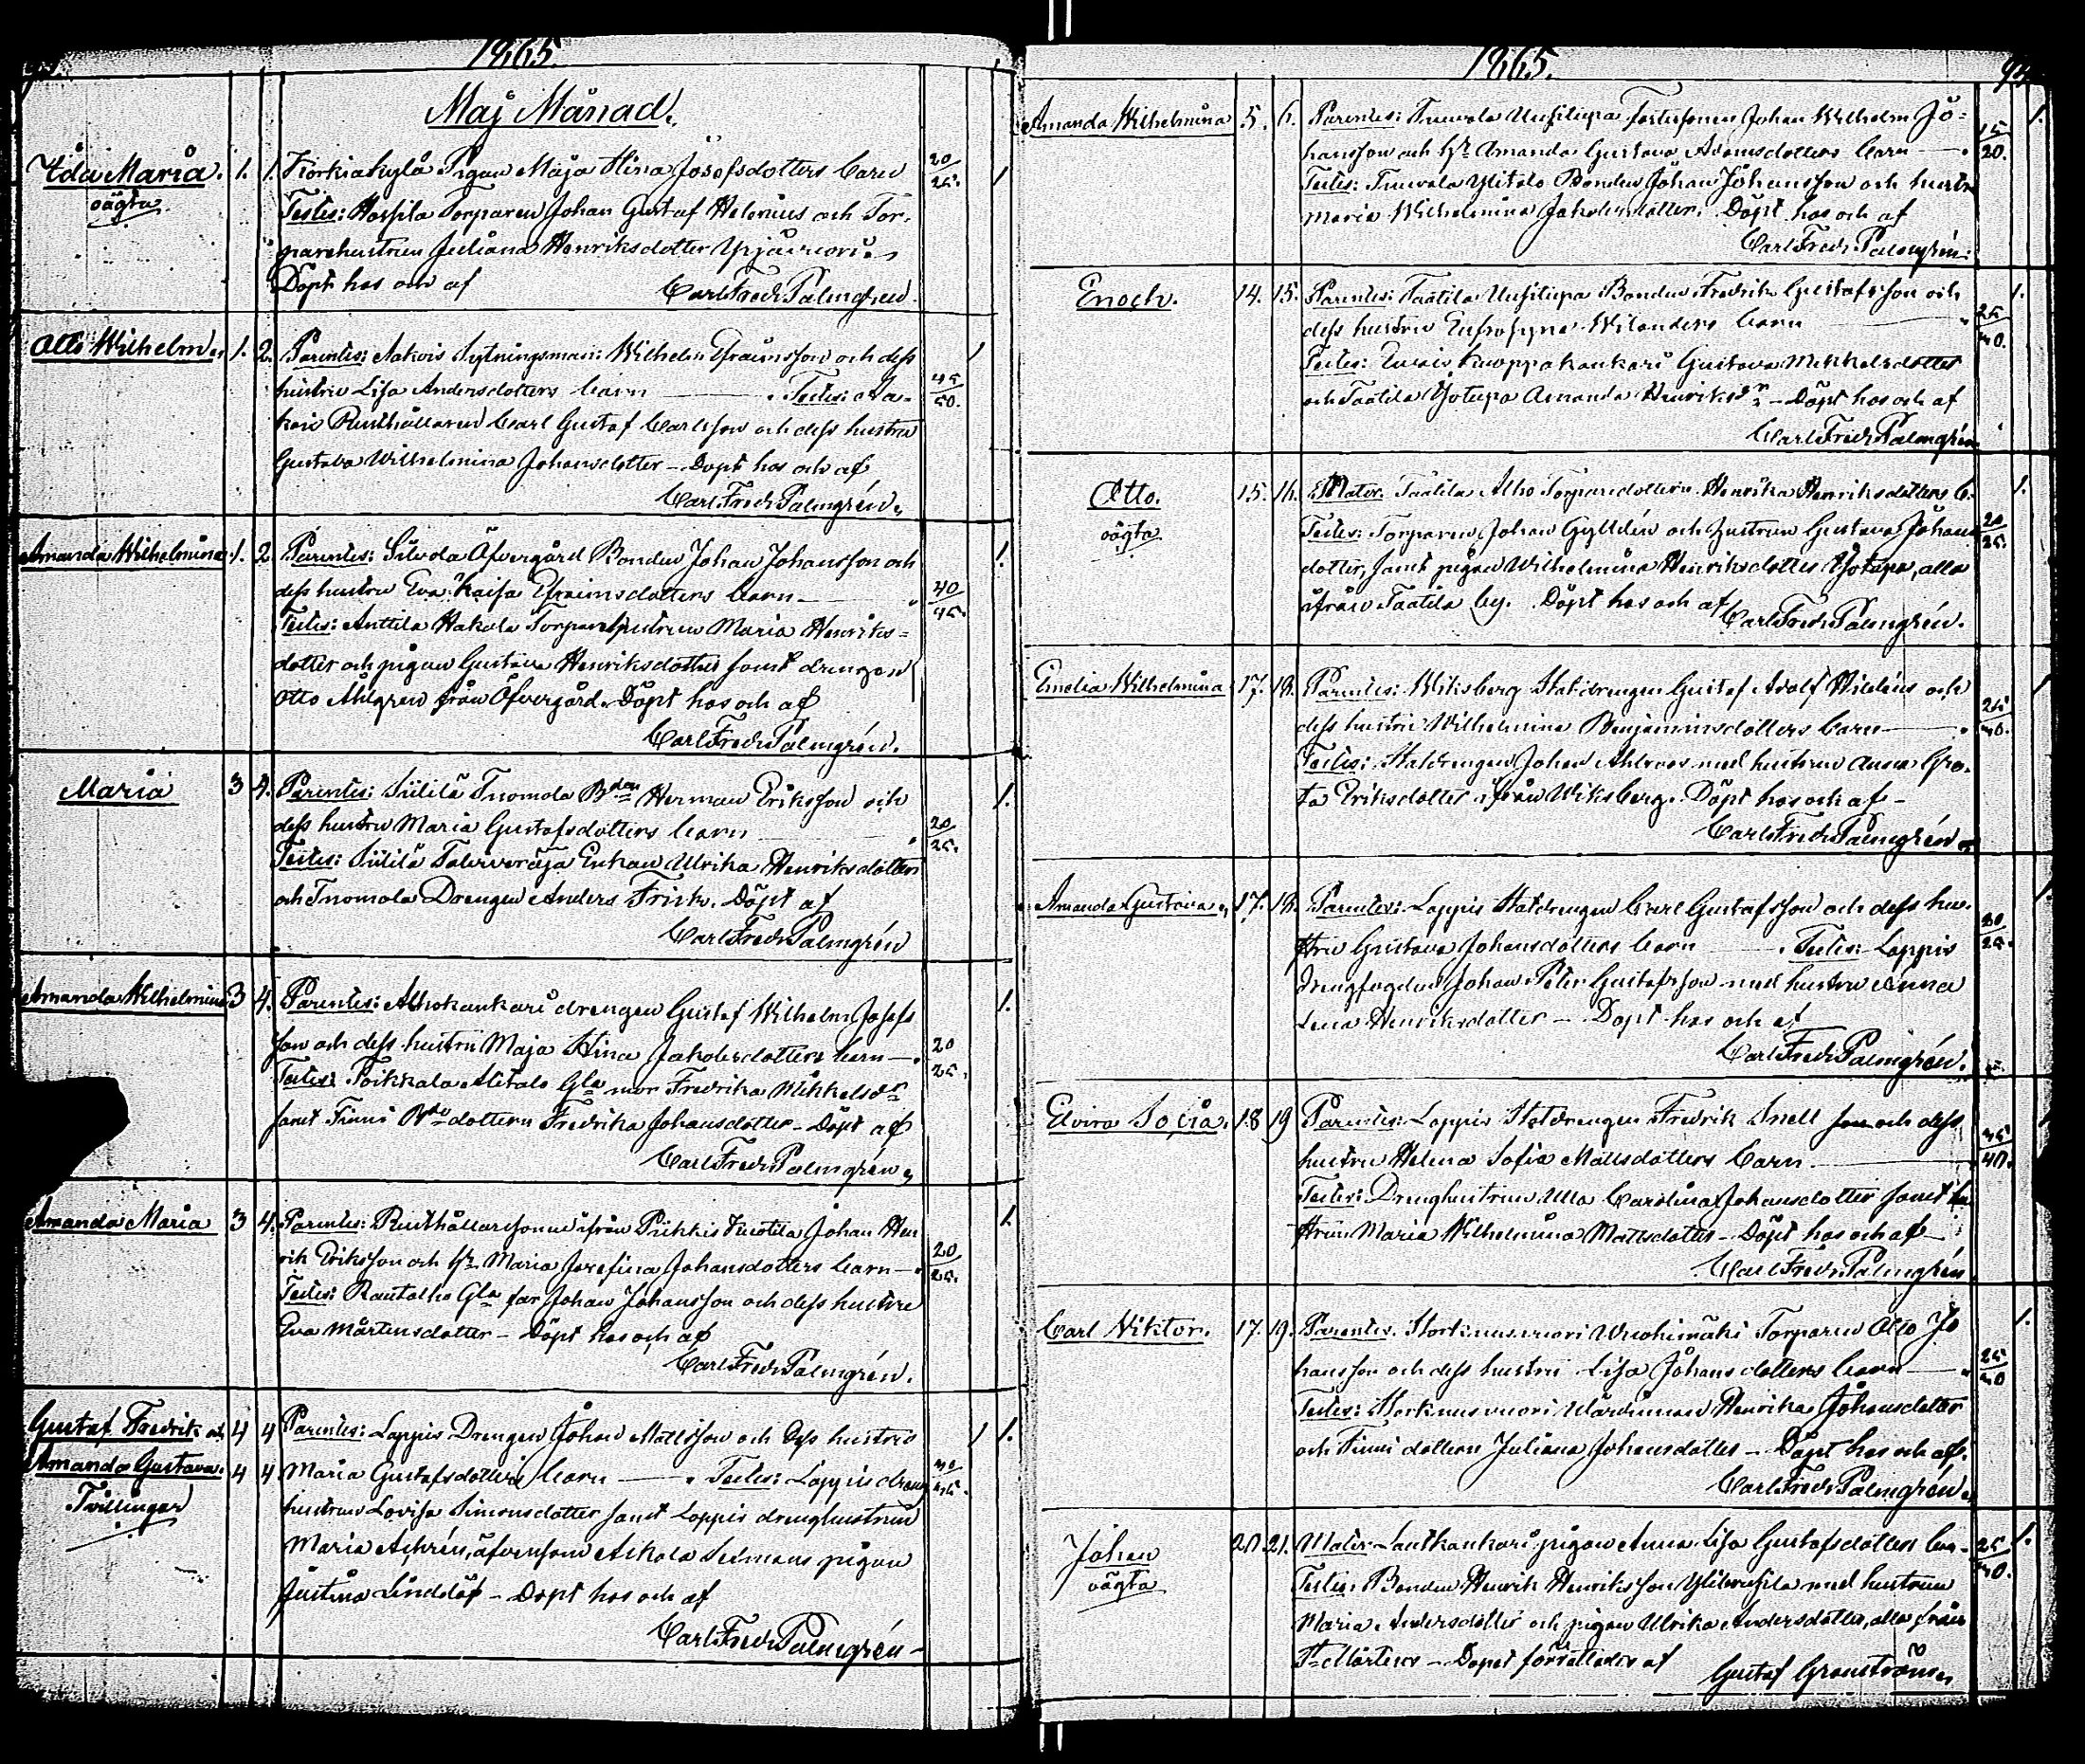 1865.
Maj Månad.
Ida Maria. 1. 1. Korkiakylä Pigan Maja Stina Josefsdotters barn 20/25. 1
oägta. Testes: Torparen Johan Gustaf Helenius och Tor-
parehustrun Juliana Henriksdotter
Döpt hos och af Carl Fredr. Palmgrén.
Otto Wilhelm. 1. 2. Parentes: Aakois Sytningsman Wilhelm Efraimsson och dess 1
hustru Lisa Andersdotters barn Testes: Aa- 45/50.
kois Rusthållaren Carl Gustaf Carlsson och dess hustru
Gustava Wilhelmina Johansdotter – Döpt hos och af
Carl Fredr. Palmgrén.
Amanda Wilhelmina 1. 2. Parentes: Öfvergård Bonden Johan Johansson och 1.
dess hustru Eva Kaisa Efraimsdotters barn 40/45.
Testes: Anttila Hakala Torparehustrun Maria Henriks-
dotter och pigan Gustava Henriksdotter samt drengen
Otto Ahlgren från Öfvergård. Döpt hos och af
Carl Fredr. Palmgrén.
Maria 3 4. Parentes: Siililä Tuomola Bden Herman Eriksson och 1.
dess hustru Maria Gustafsdotters barn 20/25.
Testes: Siililä Enkan Ulrika Henriksdotter
och Tuomola Drengen Anders Frisk. Döpt af
Carl Fredr. Palmgrén
Amanda Wilhelmina 3 4. Parentes: Alhokankari drengen Gustaf Wilhelm Josefs 1.
son och dess hustru Maja Stina Jakobsdotters barn – 20/25.
Testes: Toikkala Alitalo Gla mor Fredrika Mikkelsdr
samt Finni Bdedottern Fredrika Johansdotter – Döpt af
Carl Fredr. Palmgrén.
Amanda Maria 3 4. Parentes: Rusthållaresonen ifrån Piikkis Johan Hen 1.
rik Eriksson och Hr Maria Josefina Johansdotters barn – 20/25.
Testes: Rautalho Gla far Johan Johansson och dess hustru
Eva Mårtensdotter – Döpt hos och af
Carl Fredr. Palmgrén.
Gustaf Fredrik och 4 4 Parentes: Lappis Drengen Johan Mattsson och dess hustru 1 1.
Amanda Gustava. 4 4 Maria Gustafsdotters barn Testes: Lappis dreng
Tvillingar hustrun Lovisa Simonsdotter samt Lappis drenghustrun
Maria äfvensom Askala Selmans pigan
Justina Lindlöf – Döpt hos och af
Carl Fredr. Palmgrén –
1865.
Amanda Wilhelmina 5. 6. Parentes: Uusitupa Johan Wilhelm Jo- 1.
hansson och Hr Amanda Gustava Adamsdotters barn 15/20.
Testes: Ylitalo Bonden Johan Johansson och hustru
Maria Wilhelmina Jakobsdotter. Döpt hos och af
Carl Fredr. Palmgrén.
Enoch. 14. 15. Parentes: Taatila Uusitupa Bonden Fredrik Gustafsson och 1.
dess hustru Eufrosyna Wilanders barn
Testes: Knuppokankari Gustava Mikkelsdotter
och Taatila Yjotupa Amanda Henriksdr – Döpt hos och af
Carl Fredr. Palmgrén
Otto. 15. 16. Mater: Taatila Alho Torparedottern Henrika Henriksdotters b. 1.
oägta Testes: Torparen Johan Gylldén och hustrun Gustava Johans 20/25.
dotter, samt pigan Wilhelmina Henriksdotter Yjotupa, alla
ifrån Taatila by. Döpt hos och af
Carl Fredr. Palmgrén.
Emelia Wilhelmina 17. 18. Parentes: Wiksberg Statdrengen Gustaf Adolf och 1
dess hustru Wilhelmina Benjaminsdotters barn
Testes: Statdrengen Johan Ahlroos med hustrun Anna Gre-
ta Eriksdotter ifrån Wiksberg. Döpt hos och af –
Carl Fredr. Palmgrén
Amanda Gustava. 17. 18. Parentes: Lappis Statdrengen Carl Gustafsson och dess hu- 1.
stru Gustava Johansdotters barn Testes: Lappis 20/25.
drengfogden Johan Peter Gustafsson med hustru Anna
Lena Henriksdotter – Döpt hos och af
Carl Fredr. Palmgrén.
Elvira Sofia. 18 19 Parentes: Lappis Statdrengen Fredrik Snell son och dess 1
hustru Helena Sofia Mattsdotters barn.
Testes: Drenghustrun Ulla Carolina Johansdotter samt hu
strun Maria Wilhelmina Mattsdotter – Döpt hos och af
Carl Fredr. Palmgrén
Carl Viktor. 17. 19. Parentes. Storkinusvuori Wuohimäki Torparen Otto Jo 1.
hansson och dess hustru Lisa Johansdotters barn
Testes: Storkinusvuori Henrika Johansdotter
och Finni dottern Juliana Johansdotter – Döpt hos och af.
Carl Fredr. Palmgrén.
Johan 20. 21. Mater. Lautkankari pigan Anna Lisa Gustafsdotters bar- 1.
oägta Testes: Bonden Henrik Henriksson med hustrun
Maria Andersdotter och pigan Ulrika Andersdotter, alla från
St. Mårtens – Döpet förrättades af
Gustaf Granström.